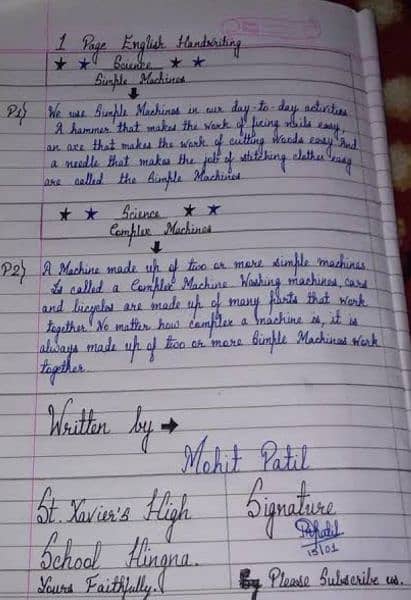 1 Page English Handwriting
★ ★ Science ★ ★
Simple Machines
P1} We use Simple Machines in our day-to-day activities
A hammer that makes the work of fixing nails easy,
an axe that makes the work of cutting woods easy And
a needle that makes the job of stitching clothes easy
are called the Simple Machines
★ ★ Science ★ ★
Complex Machines
P2} A Machine made up of two or more simple machines
is called a Complex Machine Washing machines, cars
and bicycles are made up of many parts that work
together No matter how complex a machine is, it is
always made up of two or more Simple Machines work
together.
Written by →
Mohit Patil
St. Xavier's High Signature
School Hingna. 15/01
Yours Faithfully. Please Subscribe us.